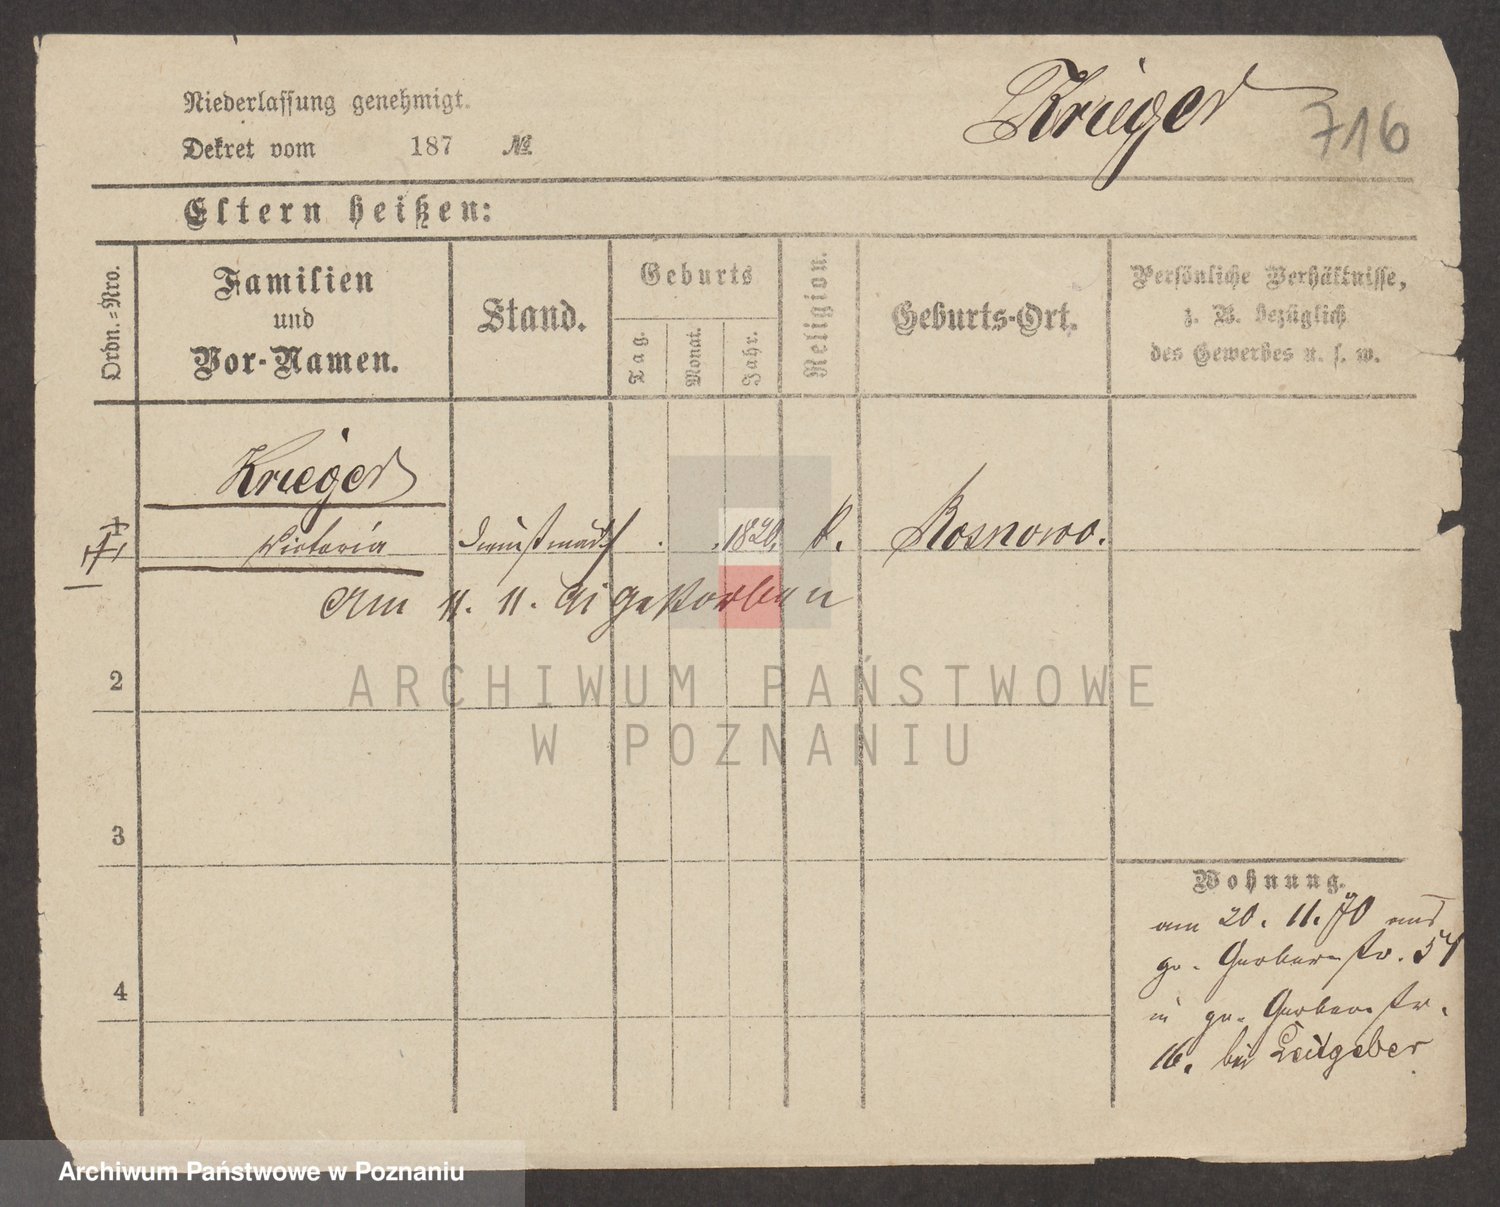 Krieger 716
Niederlassung genehmigt.
Dekret vom 187 №
Eltern heißen:
Ordn.-Nro.
Familien
und
Vor-Namen.
Stand.
Geburts
Tag.
Monat.
Jahr.
Religion.
Geburts-Ort.
Persönliche Verhältnisse,
z. B. bezüglich
des Gewerbes u. s. w.
Krieger
1 Victoria Dienstmädch . . 1820. k. Rosnowo.
Am 11. 11. gestorben
2
3
4
Wohnung.
am 20. 11. 70 aus
gr. Gerberstr. 54
in gr. Gerberstr.
16. bei Leitgeber
ARCHIWUM PAŃSTWOWE
W POZNANIU
Archiwum Państwowe w Poznaniu